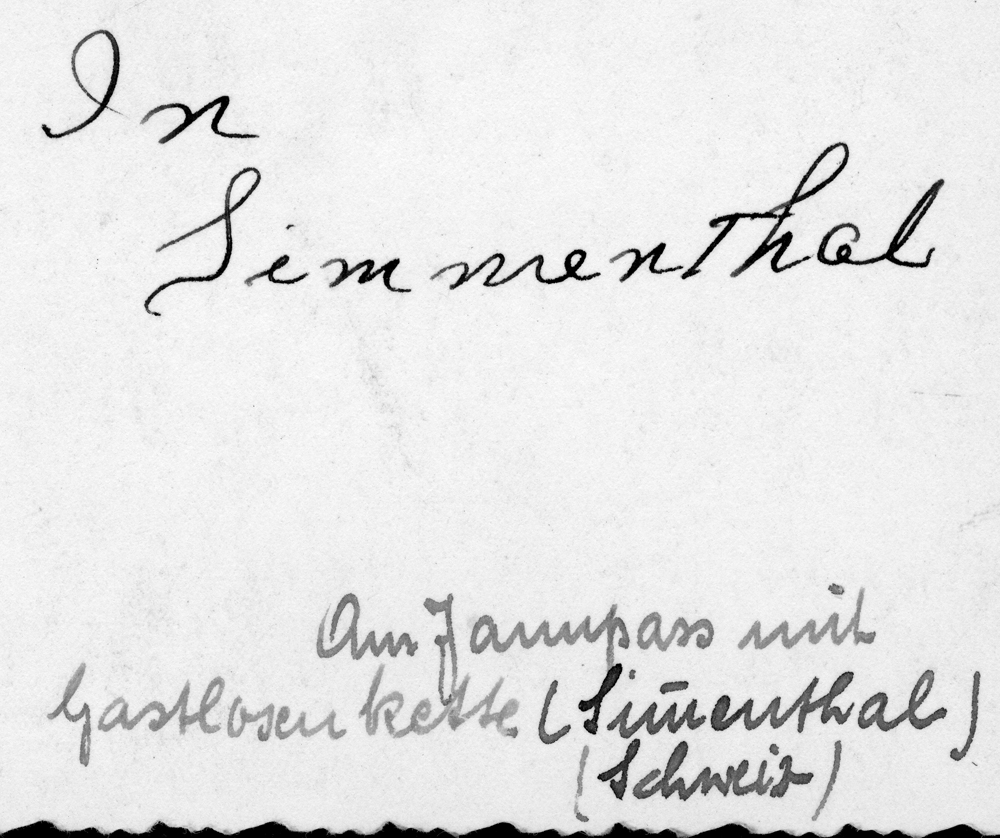 In
Simmenthal
Am Jaunpass mit
Gastlosenkette (Sim̅enthal)
(Schweiz)